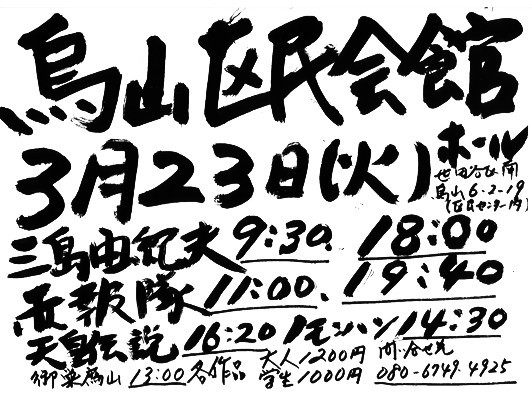 烏山区民会館
ホール
3月23日(火)
世田谷区南
烏山6-2-19
(区民センター内)
三島由紀夫 9:30、18:00
赤報隊 11:00、19:40
天皇伝説 16:20 ノモンハン 14:30
13:00 各作品 大人1200円 学生1000円
問合せ先
080-6749-4925